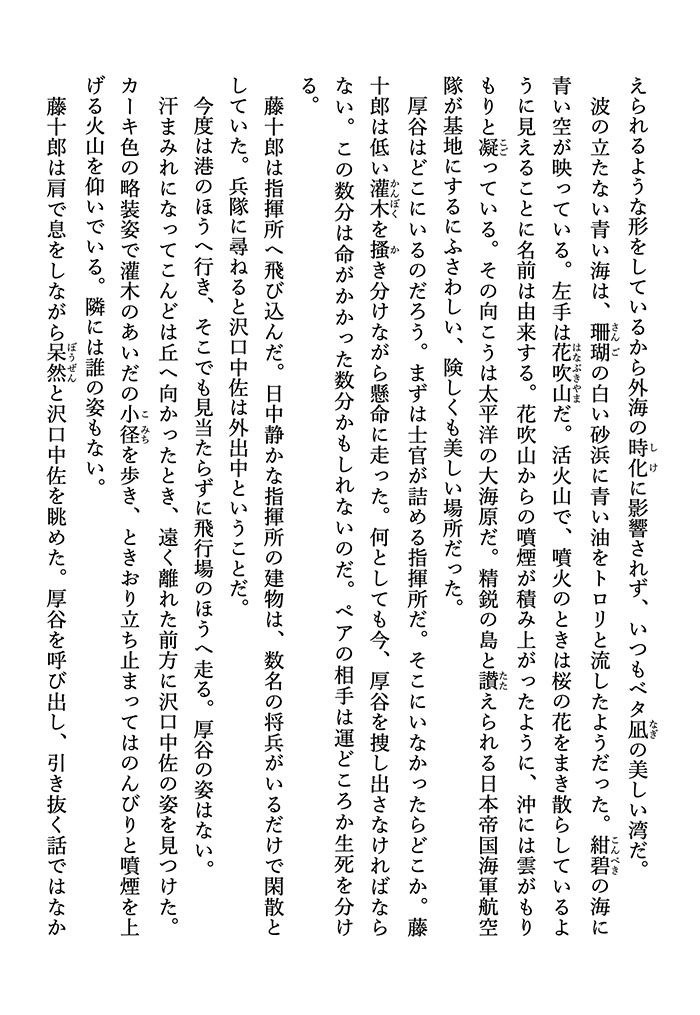 えられるような形をしているから外海の時化に影響されず、いつもベタ凪の美しい湾だ。
　波の立たない青い海は、珊瑚の白い砂浜に青い油をトロリと流したようだった。紺碧の海に
青い空が映っている。左手は花吹山だ。活火山で、噴火のときは桜の花をまき散らしているよ
うに見えることに名前は由来する。花吹山からの噴煙が積み上がったように、沖には雲がもり
もりと凝っている。その向こうは太平洋の大海原だ。精鋭の島と讃えられる日本帝国海軍航空
隊が基地にするにふさわしい、険しくも美しい場所だった。
　厚谷はどこにいるのだろう。まずは士官が詰める指揮所だ。そこにいなかったらどこか。藤
十郎は低い灌木を掻き分けながら懸命に走った。何としても今、厚谷を捜し出さなければなら
ない。この数分は命がかかった数分かもしれないのだ。ペアの相手は運どころか生死を分け
る。
　藤十郎は指揮所へ飛び込んだ。日中静かな指揮所の建物は、数名の将兵がいるだけで閑散と
していた。兵隊に尋ねると沢口中佐は外出中ということだ。
　今度は港のほうへ行き、そこでも見当たらずに飛行場のほうへ走る。厚谷の姿はない。
　汗まみれになってこんどは丘へ向かったとき、遠く離れた前方に沢口中佐の姿を見つけた。
カーキ色の略装姿で灌木のあいだの小径を歩き、ときおり立ち止まってはのんびりと噴煙を上
げる火山を仰いでいる。隣には誰の姿もない。
　藤十郎は肩で息をしながら呆然と沢口中佐を眺めた。厚谷を呼び出し、引き抜く話ではなか